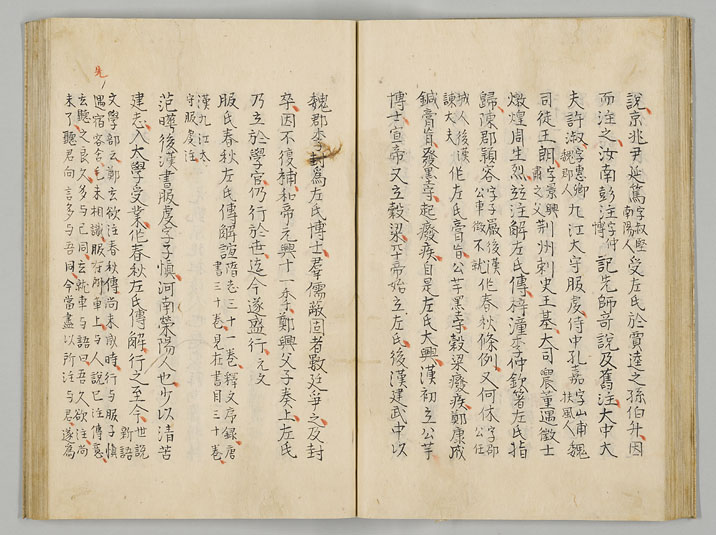 說京兆尹延篤字叔堅南陽人受左氏於賈逵之孫伯升因
而注之汝南彭汪字仲博記先師奇說及舊注大中大
夫許淑字惠卿魏郡人九江大守服虔侍中孔嘉字山甫扶風人魏
司徒王朗字景興肅之父荊州刺史王基大司農董遇徵士
燉煌周生烈並注解左氏傳梓潼李仲欽著左氏指
歸陳郡潁容字子嚴後漢公車徵不就作春秋條例又何休字邵公任
城人後漢諫大夫作左氏膏肓公羊墨守穀梁癈疾鄭康成
鍼膏肓發墨守起癈疾自是左氏大興漢初立公羊
博士宣帝又立穀梁平帝始立左氏後漢建武中以
魏郡李封為左氏博士群儒蔽固者數廷爭之及封
卒因不復補和帝元興十一年鄭興父子奏上左氏
乃立於學官仍行於世迄今遂盛行元文
服氏春秋左氏傳解誼隋志三十一卷釋文序錄唐書三十卷見在書目三十卷
漢九江太守服虔注
范曄後漢書服虔字子慎河南滎陽人也少以清苦
建志入大學受業作春秋左氏傳解行之至今世說新語
文學部云鄭玄欲注春秋傳尚未成時行与服子慎
遇宿客舍先未相識服在外車上与人說己注傳意
玄聽之良久多与己同玄就車与語曰吾久欲注尚
未了聽君向言多与吾同今當盡以所注与君遂為
先